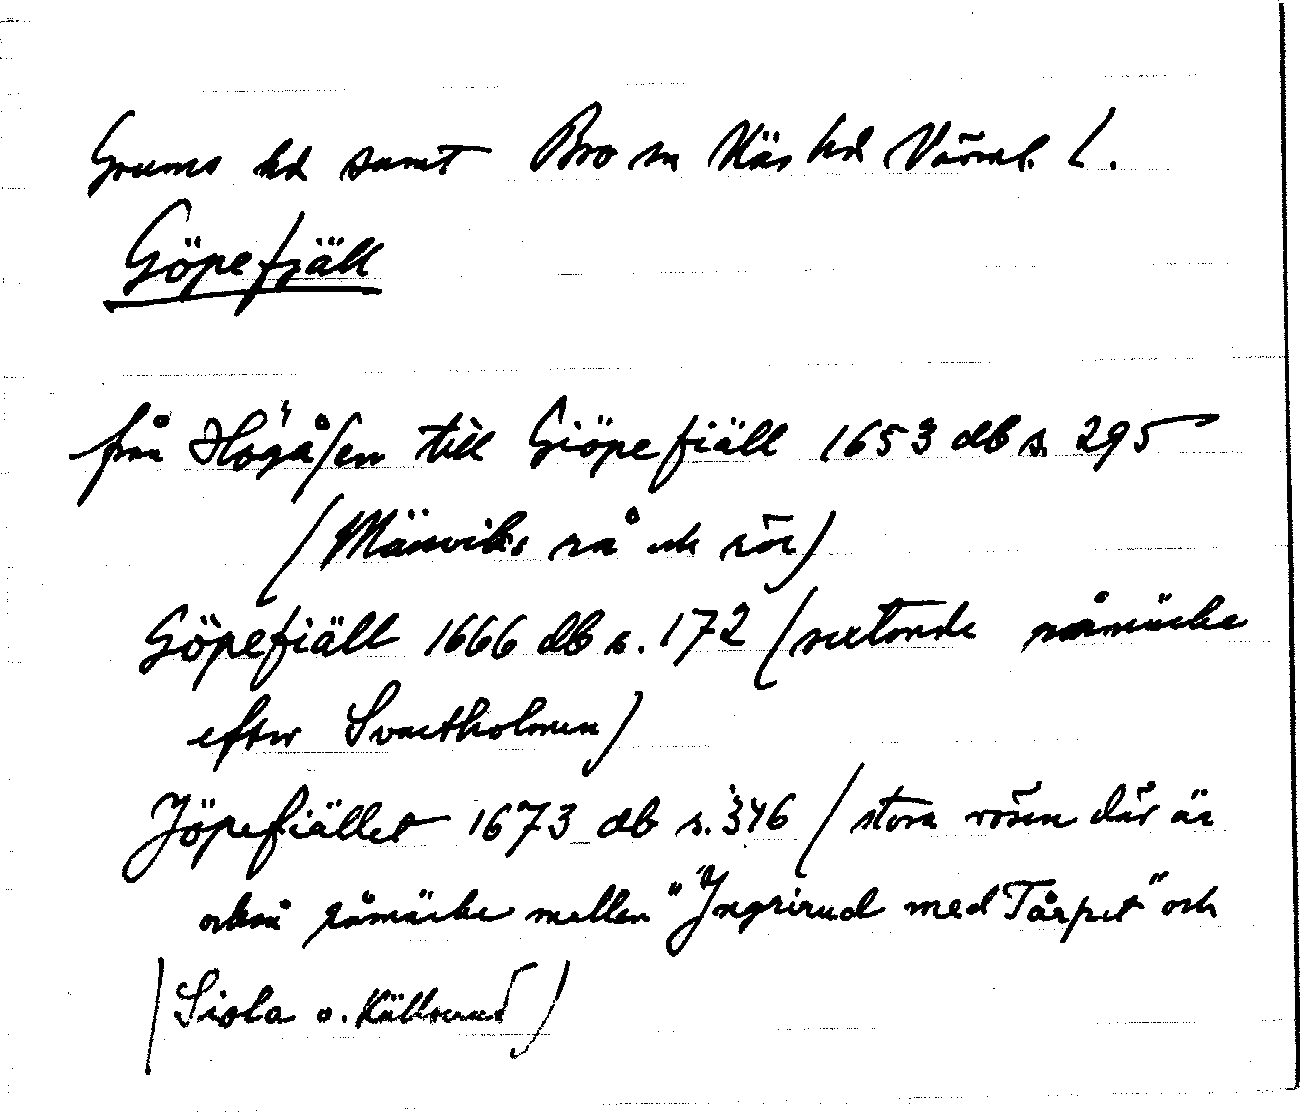 Grums hd samt Bro sn Näs hd Värml. L.
Göpefjäll
från Högåsen till Giöpefiäll 1653 db s. 295
(Mänviks rå och rör)
Göpefiäll 1666 db s. 172 (sextonde råmärke
efter Svartholmen)
Jöpefiället 1673 db s. 346 (stora rösen där är
också råmärke mellan "Jngrirud med Tårpet" och
Siola o. Källsrud)